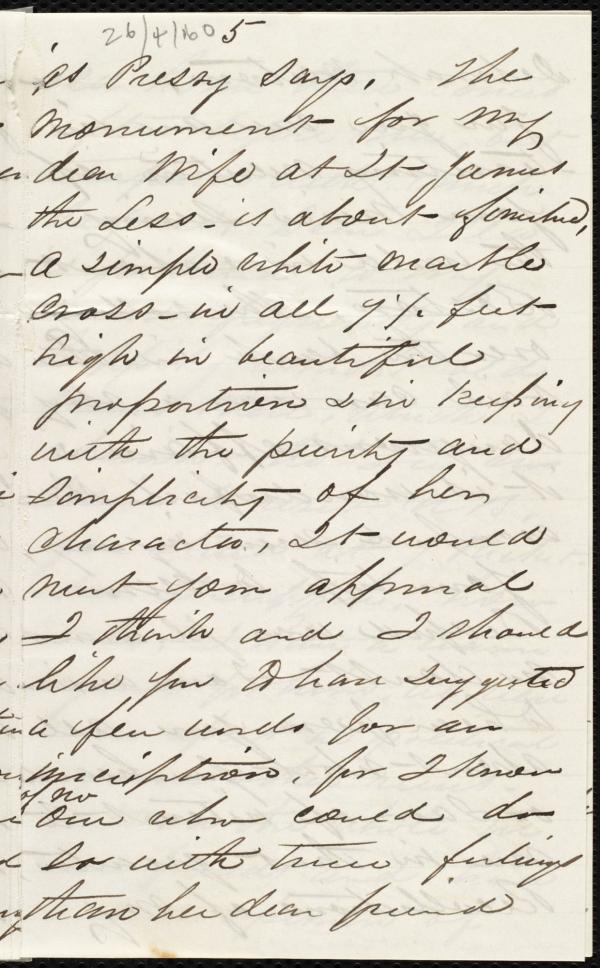 26/4/60 5
as Pressy says. The
monument for my
dear Wife at St James
the Less - is about finished,
a simple white marble
cross - in all 9½ feet
high in beautiful
proportion & in keeping
with the purity and
simplicity of her
character, It would
meet your approval
I think and I should
like you to have suggested
a few words for an
inscription, for I know
of no
One who could do
so with truer feelings
than her dear friend